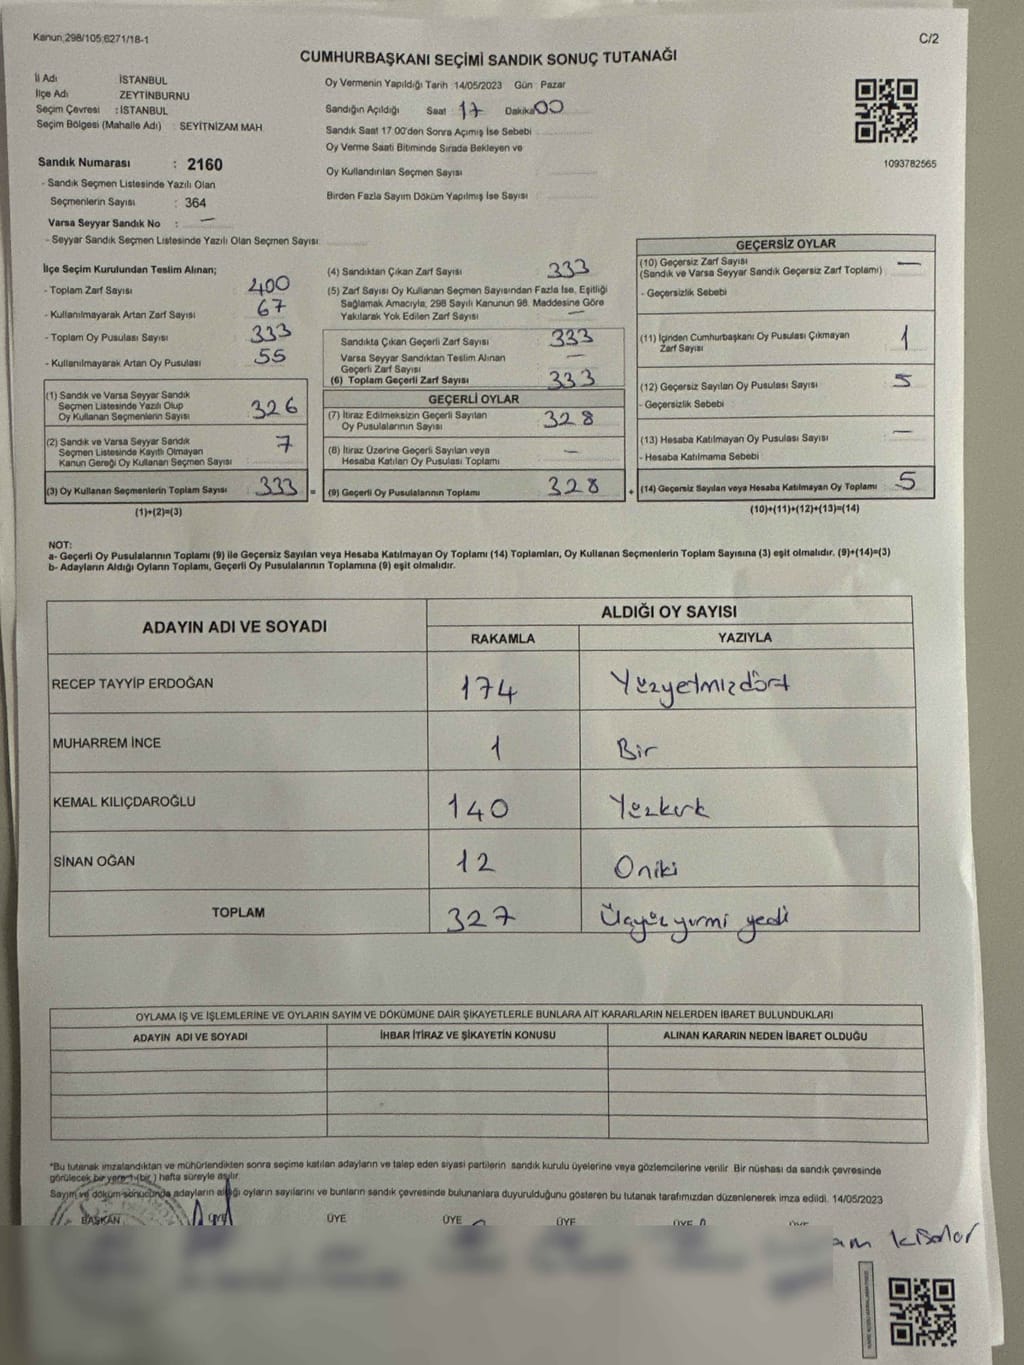 Kanun;298/105;6271/18-1
C/2
CUMHURBAŞKANI SEÇİMİ SANDIK SONUÇ TUTANAĞI
İl Adı İSTANBUL
İlçe Adı ZEYTİNBURNU
Seçim Çevresi : İSTANBUL
Seçim Bölgesi (Mahalle Adı) SEYİTNİZAM MAH.
Sandık Numarası : 2160
- Sandık Seçmen Listesinde Yazılı Olan
Seçmenlerin Sayısı : 364
Varsa Seyyar Sandık No : —
- Seyyar Sandık Seçmen Listesinde Yazılı Olan Seçmen Sayısı:
Oy Vermenin Yapıldığı Tarih 14/05/2023 Gün Pazar
Sandığın Açıldığı Saat 17 Dakika 00
Sandık Saat 17.00'den Sonra Açımış İse Sebebi
Oy Verme Saati Bitiminde Sırada Bekleyen ve
Oy Kullandırılan Seçmen Sayısı
Birden Fazla Sayım Döküm Yapılmış İse Sayısı
1093782565
İlçe Seçim Kurulundan Teslim Alınan;
- Toplam Zarf Sayısı 400
- Kullanılmayarak Artan Zarf Sayısı 67
- Toplam Oy Pusulası Sayısı 333
- Kullanılmayarak Artan Oy Pusulası 55
(1) Sandık ve Varsa Seyyar Sandık
Seçmen Listesinde Yazılı Olup
Oy Kullanan Seçmenlerin Sayısı 326
(2) Sandık ve Varsa Seyyar Sandık
Seçmen Listesinde Kayıtlı Olmayan
Kanun Gereği Oy Kullanan Seçmen Sayısı 7
(3) Oy Kullanan Seçmenlerin Toplam Sayısı 333 =
(1)+(2)=(3)
(4) Sandıktan Çıkan Zarf Sayısı 333
(5) Zarf Sayısı Oy Kullanan Seçmen Sayısından Fazla İse, Eşitliği
Sağlamak Amacıyla, 298 Sayılı Kanunun 98. Maddesine Göre
Yakılarak Yok Edilen Zarf Sayısı —
Sandıkta Çıkan Geçerli Zarf Sayısı 333
Varsa Seyyar Sandıktan Teslim Alınan
Geçerli Zarf Sayısı —
(6) Toplam Geçerli Zarf Sayısı 333
GEÇERLİ OYLAR
(7) İtiraz Edilmeksizin Geçerli Sayılan
Oy Pusulalarının Sayısı 328
(8) İtiraz Üzerine Geçerli Sayılan veya
Hesaba Katılan Oy Pusulası Toplamı —
(9) Geçerli Oy Pusulalarının Toplamı 328 +
GEÇERSİZ OYLAR
(10) Geçersiz Zarf Sayısı —
(Sandık ve Varsa Seyyar Sandık Geçersiz Zarf Toplamı)
- Geçersizlik Sebebi
(11) İçinden Cumhurbaşkanı Oy Pusulası Çıkmayan
Zarf Sayısı 1
(12) Geçersiz Sayılan Oy Pusulası Sayısı 5
- Geçersizlik Sebebi
(13) Hesaba Katılmayan Oy Pusulası Sayısı —
- Hesaba Katılmama Sebebi
(14) Geçersiz Sayılan veya Hesaba Katılmayan Oy Toplamı 5
(10)+(11)+(12)+(13)=(14)
NOT:
a- Geçerli Oy Pusulalarının Toplamı (9) ile Geçersiz Sayılan veya Hesaba Katılmayan Oy Toplamı (14) Toplamları, Oy Kullanan Seçmenlerin Toplam Sayısına (3) eşit olmalıdır. (9)+(14)=(3)
b- Adayların Aldığı Oyların Toplamı, Geçerli Oy Pusulalarının Toplamına (9) eşit olmalıdır.
ADAYIN ADI VE SOYADI
ALDIĞI OY SAYISI
RAKAMLA YAZIYLA
RECEP TAYYİP ERDOĞAN 174 Yüzyetmişdört
MUHARREM İNCE 1 Bir
KEMAL KILIÇDAROĞLU 140 Yüzkırk
SİNAN OĞAN 12 Oniki
TOPLAM 327 Üçyüz yirmi yedi
OYLAMA İŞ VE İŞLEMLERİNE VE OYLARIN SAYIM VE DÖKÜMÜNE DAİR ŞİKAYETLERLE BUNLARA AİT KARARLARIN NELERDEN İBARET BULUNDUKLARI
ADAYIN ADI VE SOYADI İHBAR İTİRAZ VE ŞİKAYETİN KONUSU ALINAN KARARIN NEDEN İBARET OLDUĞU
*Bu tutanak imzalandıktan ve mühürlendikten sonra seçime katılan adayların ve talep eden siyasi partilerin sandık kurulu üyelerine veya gözlemcilerine verilir. Bir nüshası da sandık çevresinde
görülecek bir yere 1 (bir) hafta süreyle asılır.
Sayım ve döküm sonucunda adayların aldığı oyların sayılarını ve bunların sandık çevresinde bulunanlara duyurulduğunu gösteren bu tutanak tarafımızdan düzenlenerek imza edildi. 14/05/2023
BAŞKAN ÜYE ÜYE ÜYE ÜYE ÜYE ÜYE